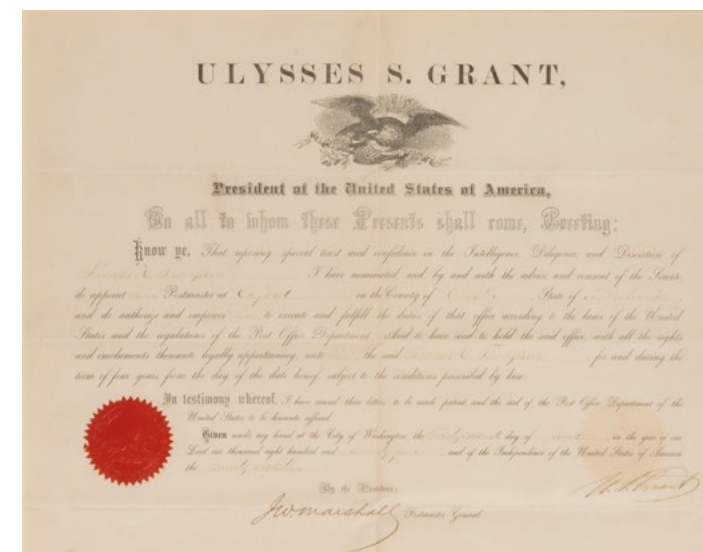 ULYSSES S. GRANT,
President of the United States of America,
To all to whom these Presents shall come, Greeting:
Know ye, That reposing special trust and confidence in the Intelligence, Diligence, and Discretion of
I have nominated, and, by and with the advice and consent of the Senate
do appoint him Postmaster at in the County of State of
and do authorize and empower him to execute and fulfill the duties of that office according to the laws of the United
States and the regulations of the Post Office Department. And to have and to hold the said office, with all the rights
and emoluments thereunto legally appertaining, unto the said , for and during the
term of four years from the day of the date hereof, subject to the conditions prescribed by law.
In testimony whereof, I have caused these letters to be made patent, and the seal of the Post Office Department of the
United States to be hereunto affixed.
Given under my hand at the City of Washington, the day of in the year of our
Lord one thousand eight hundred and and of the Independence of the United States of America
the
By the President:
U. S. Grant
J W Marshall Postmaster General.